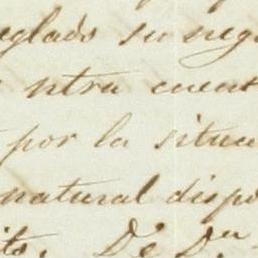 eglado su neg
ntra cuent
por la situac
natural dispo
ito. De D.